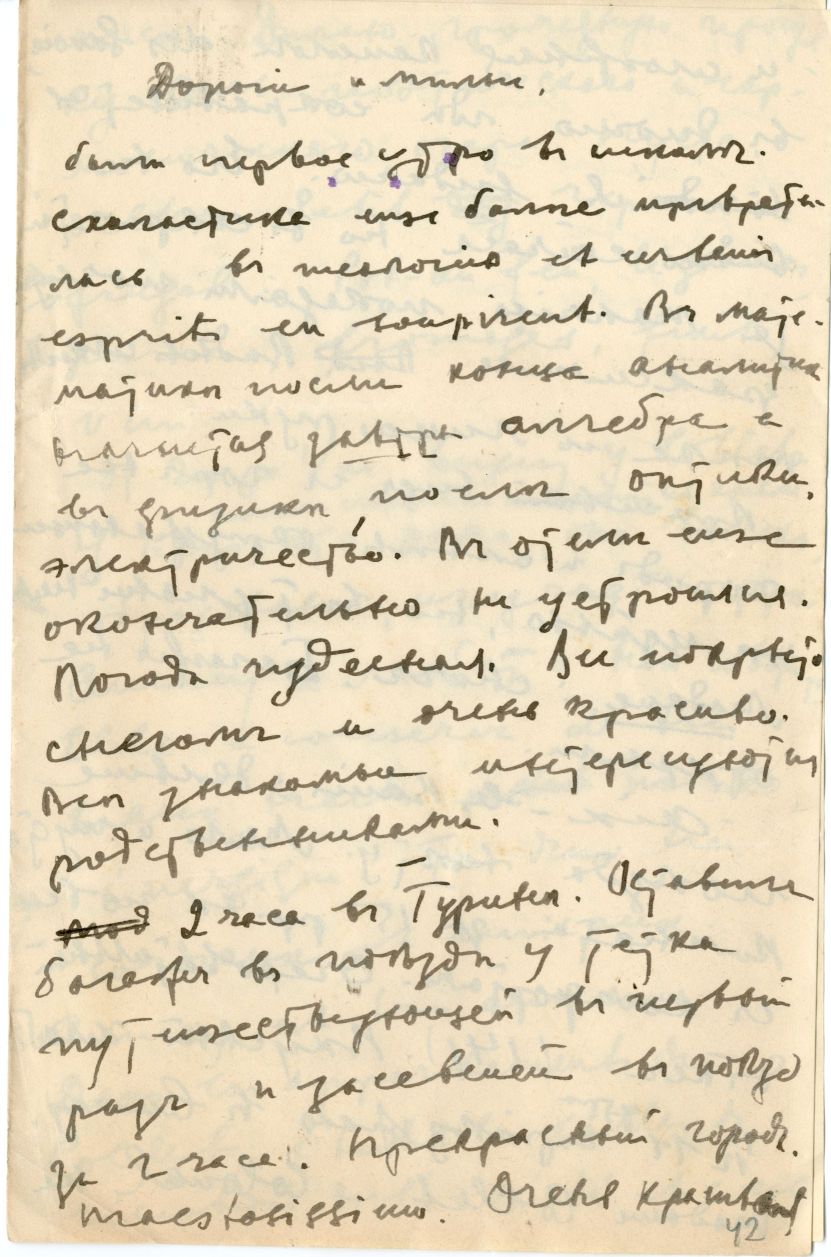 Дорогие и милые,
было первое утро въ школѣ.
Схоластика еще болѣе преврати-
лась въ теологію et certains
esprits en soupirent. Въ мате-
матикѣ послѣ конца аналитики
начнется завтра алгебра а
въ физикѣ, послѣ оптики,
электричество. Въ отели еще
окончательно не устроился.
Погода чудесная. Все покрыто
снегомъ и очень красиво.
Всѣ знакомые интересуются
родственниками.
2 часа въ Туринѣ. Оставили
багажъ въ поѣздѣ у тетки
путешествующей въ первый
разъ и засевшей въ поѣзд
за 2 часа. Прекрасный городъ.
maestosissimo. Очень красивый
42